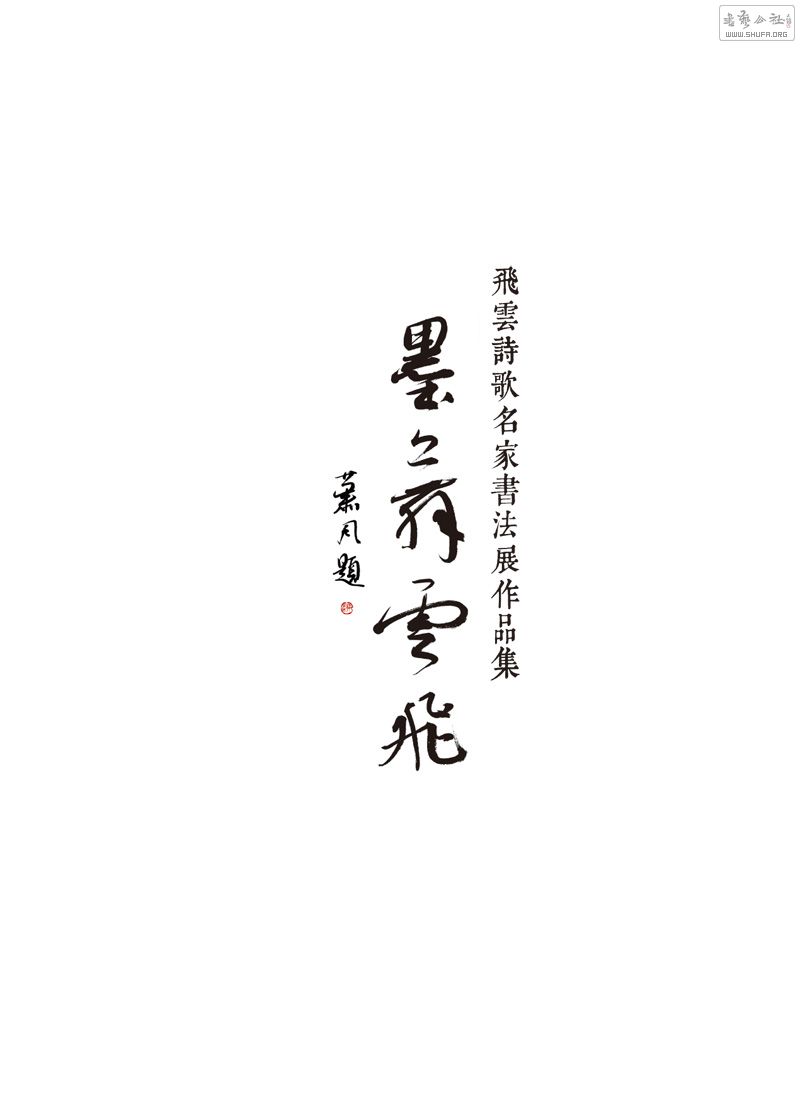 書藝公社
WWW.SHUFA.ORG
飛雲詩歌名家書法展作品集
墨舞雲飛
蕭风題